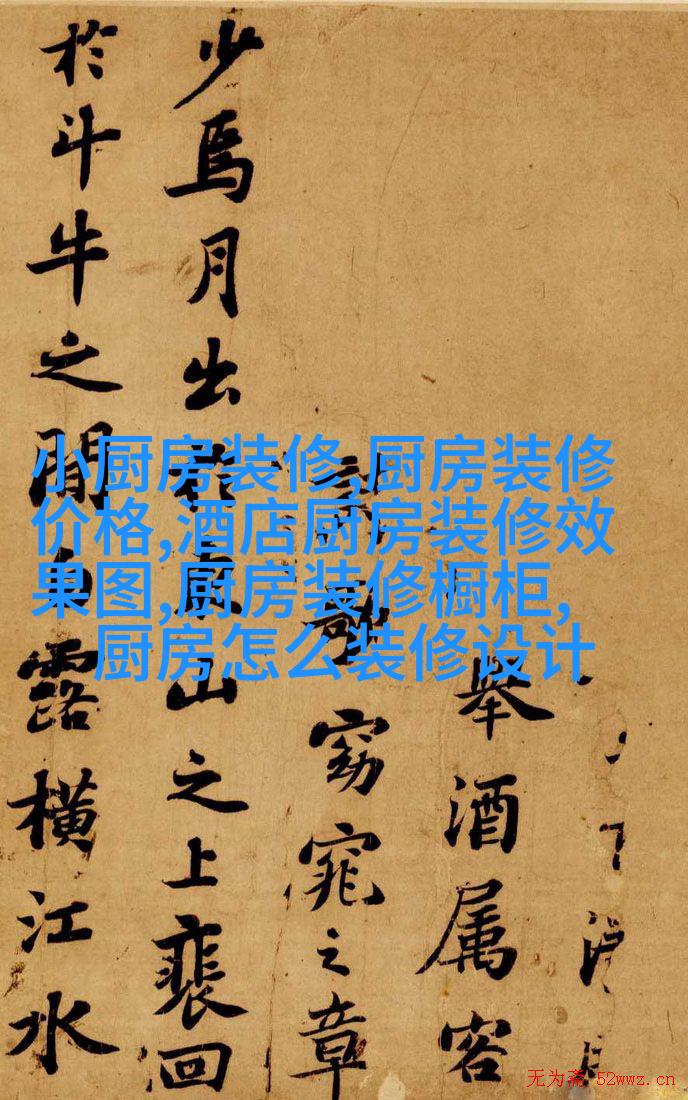 舉酒属客
詩歌窈窕之章
少焉月出於東山之上裴回
於斗牛之間白露橫江水
小厨房装修,厨房装修
价格,酒店厨房装修效
果图,厨房装修橱柜,
厨房怎么装修设计
无为斋 52wwz.cn